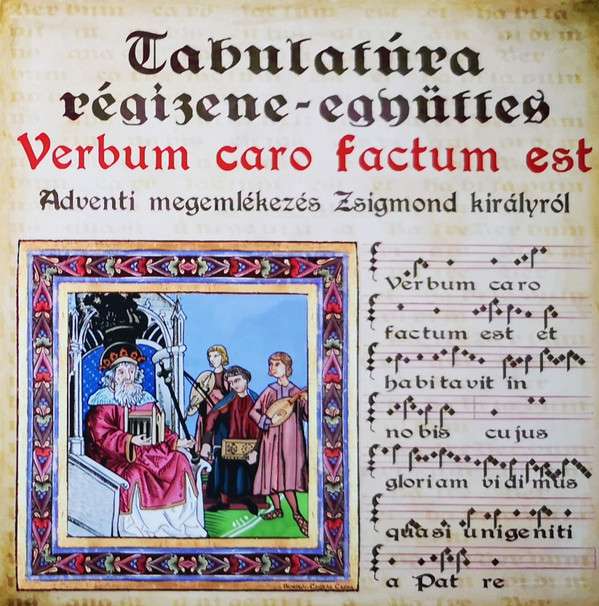 Tabulatúra
régizene-együttes
Verbum caro factum est
Adventi megemlékezés Zsigmond királyról
Verbum caro
factum est et
habitavit in
nobis cujus
gloriam vidimus
quasi unigeniti
a Pat re